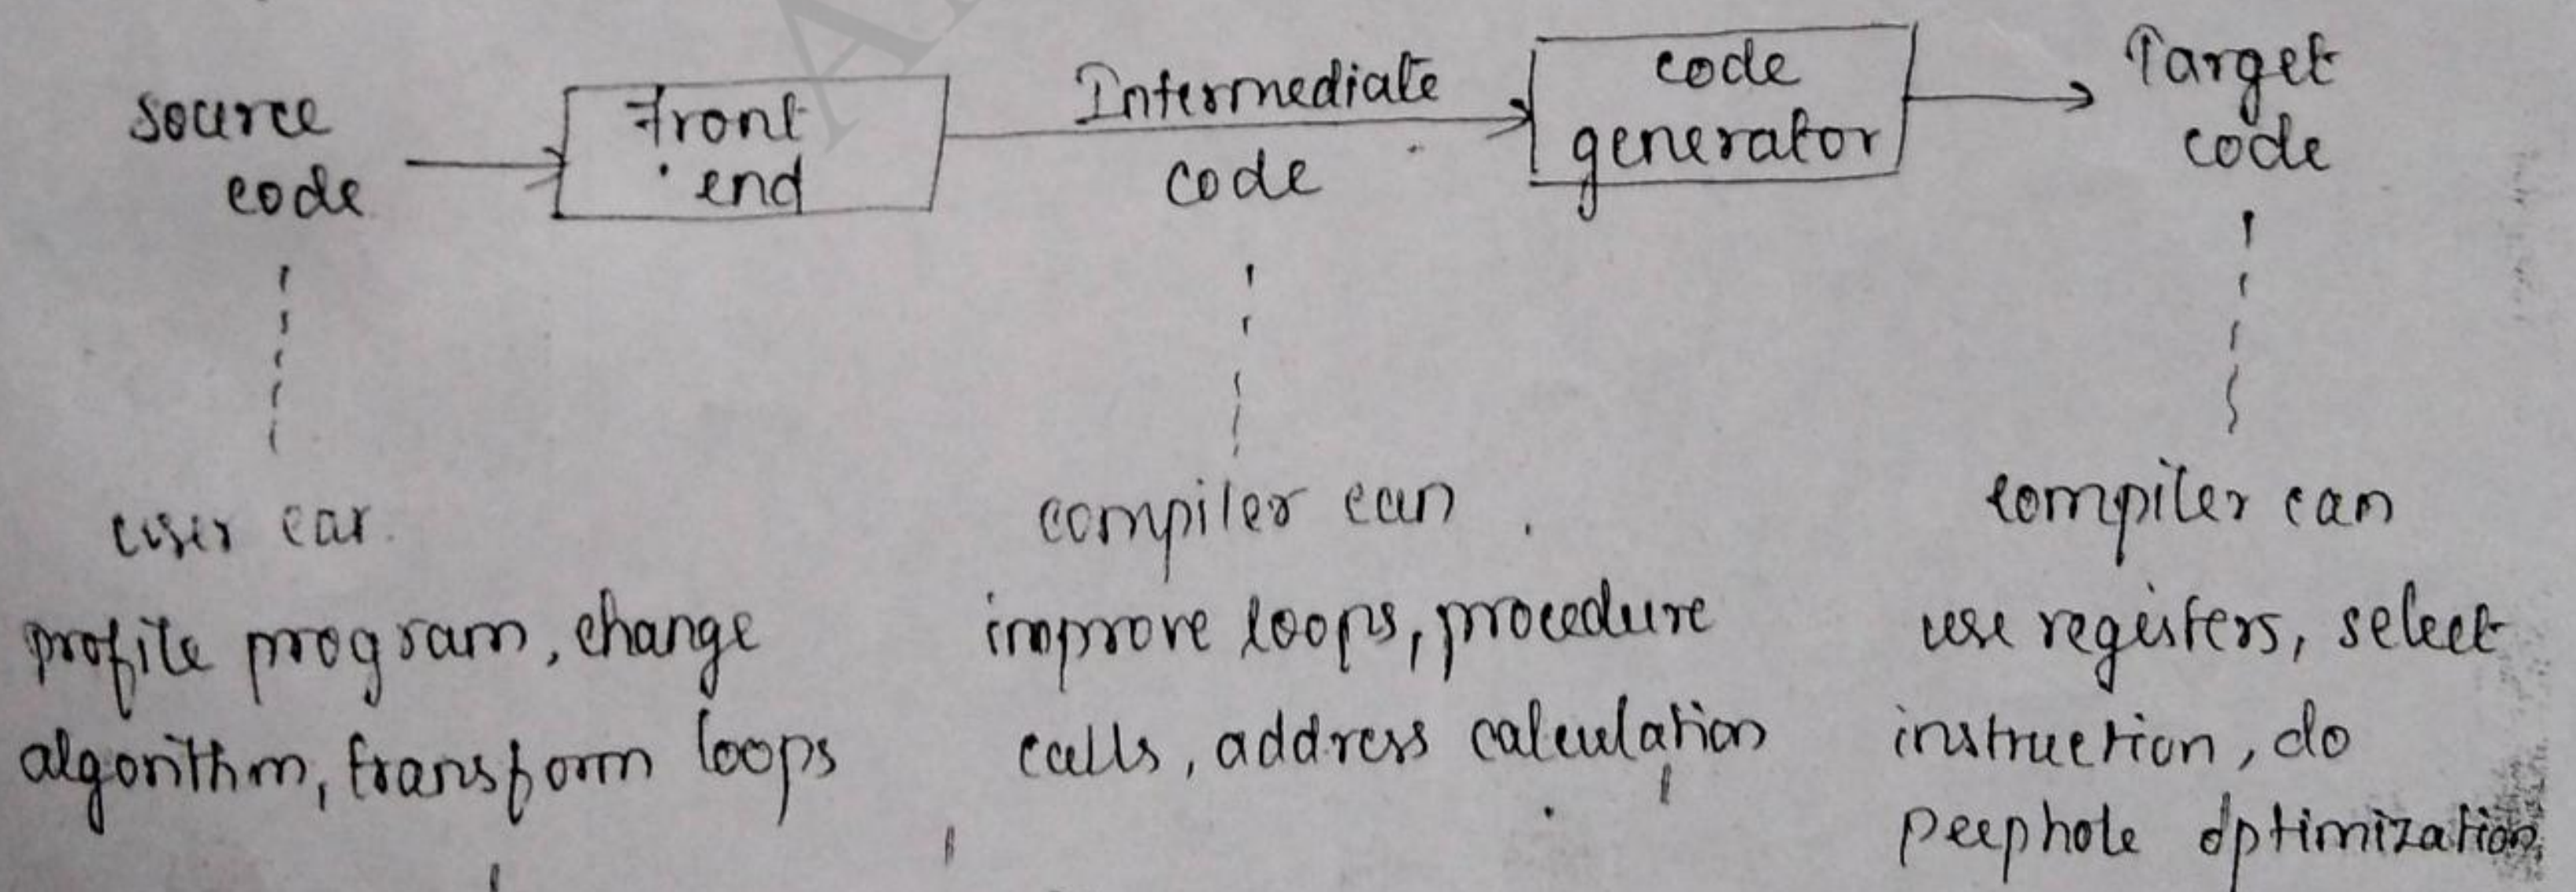 source code
Front end
Intermediate code
code generator
Target code
user can
profile program, change
algorithm, transform loops
compiler can
improve loops, procedure
calls, address calculation
compiler can
use registers, select
instruction, do
peephole optimization